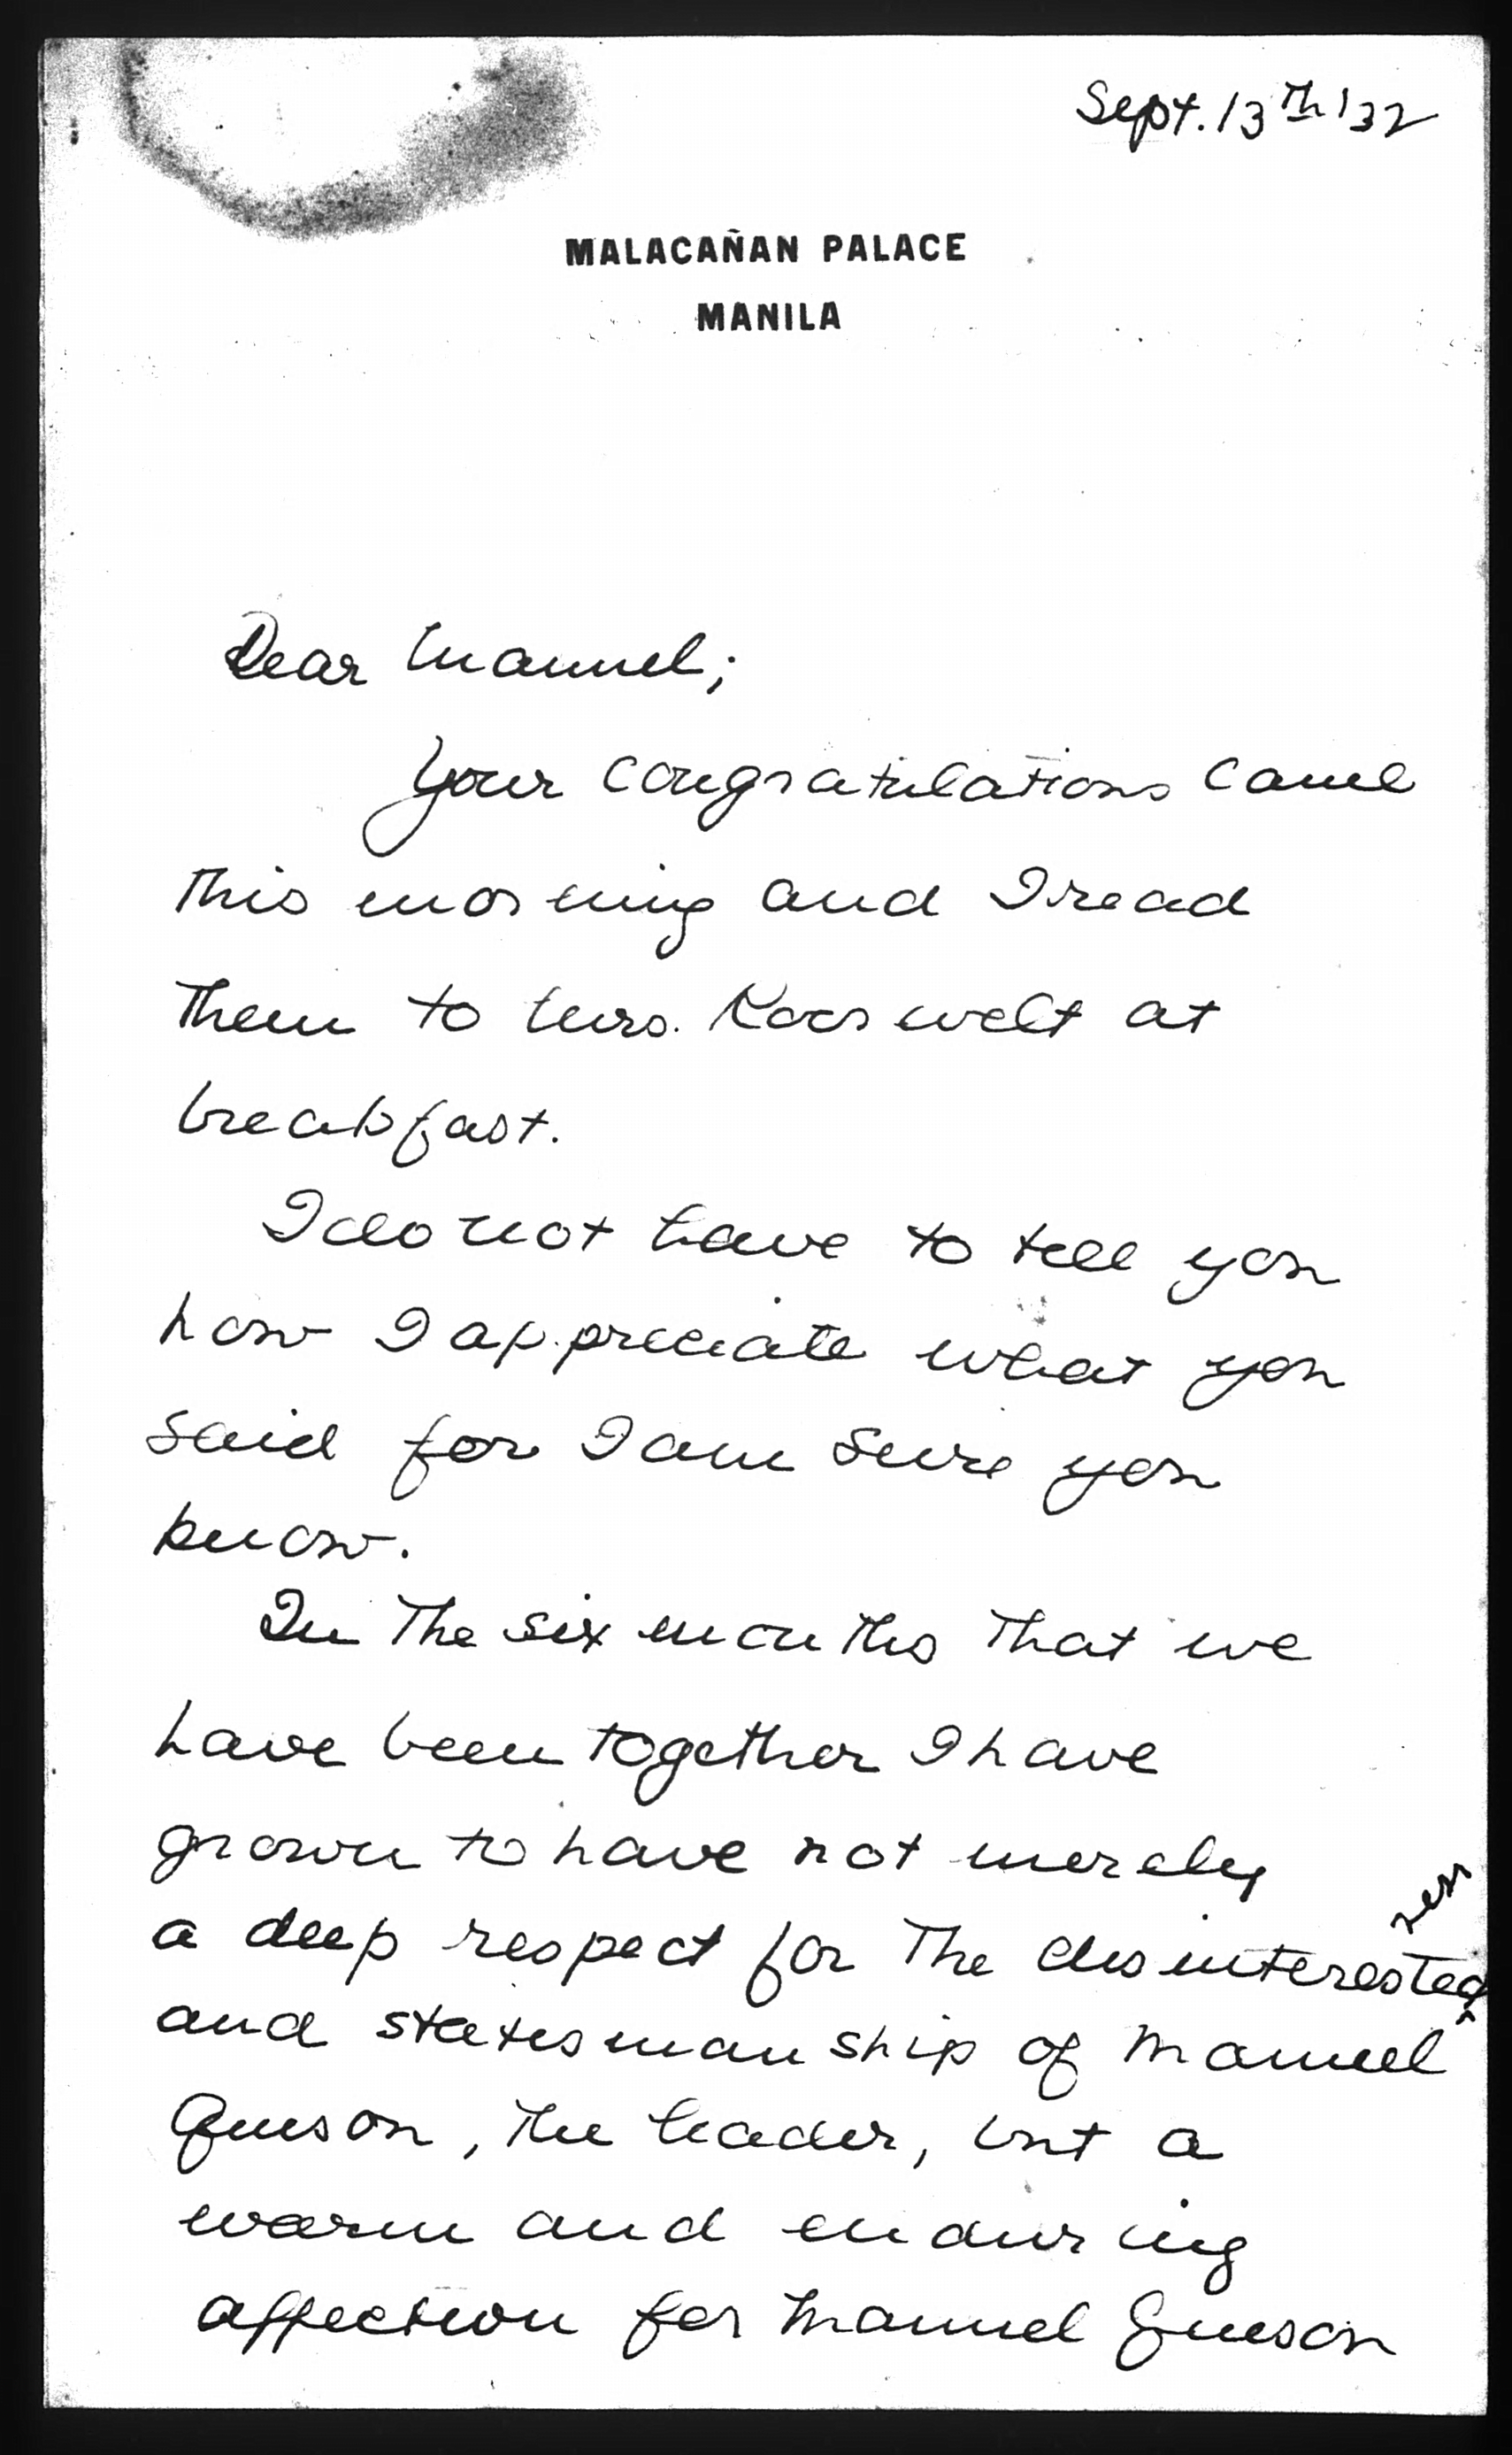 Sept. 13th '32
MALACAÑAN PALACE
MANILA
Dear Manuel;
Your congratulations came
this morning and I read
them to Mrs. Roosevelt at
breakfast.
I do not have to tell you
how I appreciate what you
said for I am sure you
know.
In the six months that we
have been together I have
grown to have not merely
a deep respect for the disinterested
and statesmanship of Manuel
Queson, the leader, but a
warm and enduring
affection for Manuel Queson